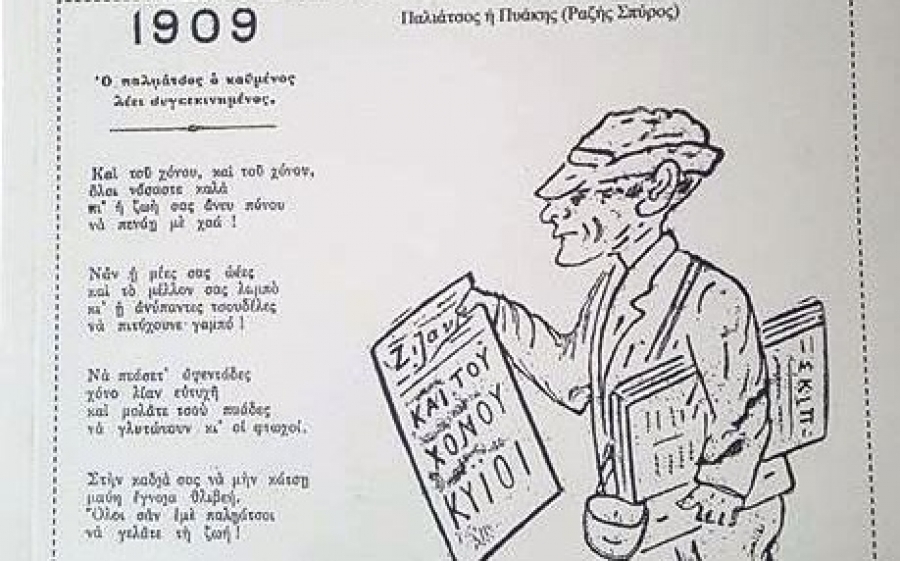 1909
Παλιάτσος ή Πυάκης (Ραζής Σπύρος)
Ὁ παλιάτσος ὁ καϋμένος
λέει συγκεκινημένος.
Καὶ τοῦ χόνου, καὶ τοῦ χόνου,
ὅλοι νἄσαστε καλὰ
κι' ἡ ζωή σας ἄνευ πόνου
νὰ πενάῃ μὲ χαά !
Νἆν ᾑ μέες σας ὡέες
καὶ τὸ μέλλον σας λαμπὸ
κι' ᾑ ἀνύπαντες τσουδέλες
νὰ πιτύχουνε γαμπό !
Νὰ πεάσετ' ἀφεντάδες
χόνο λίαν εὐτυχῆ
καὶ μολᾶτε τσοὺ παάδες
νὰ γλυτώνουν κι' οἱ φτωχοί.
Στὴν καδιά σας νὰ μὴν κάτσῃ
μαύη ἔγνοια θλιβεή,
Ὅλοι σὰν ἐμὲ παληάτσοι
νὰ γελᾶτε τὴ ζωή !
ΚΑΙ ΤΟΥ
ΧΟΝΟΥ
ΚΥΙΟΙ
ΣΚΙΠ